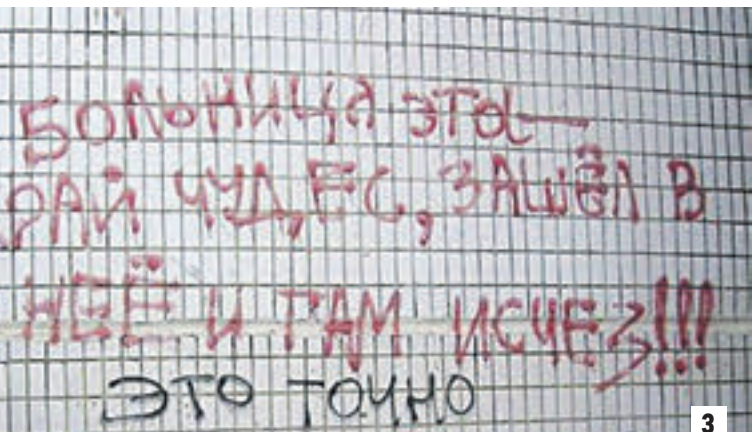 БОЛЬНИЦА ЭТА—
РАЙ ЧУДЕС, ЗАШЁЛ В
НЕЁ И ТАМ ИСЧЕЗ!!!
ЭТО ТОЧНО
3